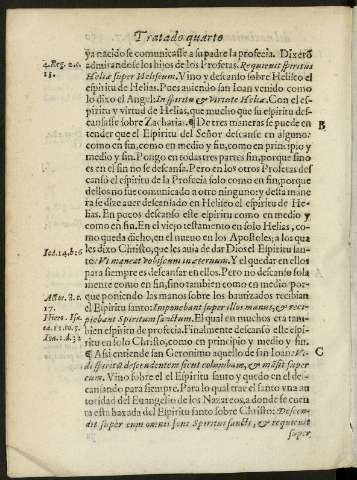 Tratado quarto
ya nacido se comunicasse a su padre la profecia. Dixerō
4. Reg. 2. c. admirandose los hijos de los Profetas. Requieuit spiritus
15. Heliæ super Heliseum. Vino y descanso sobre Heliseo el
espiritu de Helias. Pues auiendo san Ioan venido como
lo dixo el Angel: In spiritu & virtute Heliæ. Con el es-
piritu y virtud de Helias, que mucho que su espiritu des-
cansasse sobre Zacharias. ¶ De tres maneras se puede en B
tender que el Espiritu del Señor descanse en alguno:
como en fin, como en medio y fin, como en principio y
medio y fin. Pongo en todas tres partes fin, porque sino
es en el fin no se descansa. Pero en los otros Profetas des
cansó el espiritu de la Profecia solo como en fin, porque
dellos no fue comunicado a otro ninguno: y desta mane
ra se dize auer descansado en Heliseo el espiritu de He-
lias. En pocos descanso este espiritu como en medio y
como en fin. En el viejo testamento en solo Helias, co-
mo queda dicho, en el nueuo en los Apostoles; a los que
Ioā. 14. b. 16 les dixo Christo, que les auia de dar Dios el Espiritu san-
to: Vt maneat vobiscum in æternum. Y el quedar en ellos
para siempre es descansar en ellos. Pero no descanso sola
mente como en fin, sino tambien como en medio por-
Actor. 8. c. que poniendo las manos sobre los bautizados recibian
17. el Espiritu santo: Imponebant super illos manus, & reci-
piebant Spiritum sanctum. El qual en muchos era tam-
bien espiritu de profecia. Finalmente descanso este espi-
ritu en solo Christo, como en principio, y medio y fin.
¶ Assi entiende san Geronimo aquello de san Ioan: Vi- C
di spiritū descendentem sicut columbam, & māsit super
eum. Vino sobre el el Espiritu santo y quedo en el des-
cansando para siempre. Para lo qual trae el santo vna au
toridad del Euangelio de los Nazareos, a donde se cuen
ta esta baxada del Espiritu santo sobre Christo: Descen-
dit super eum omnis fons Spiritus sancti, & requieuit
super